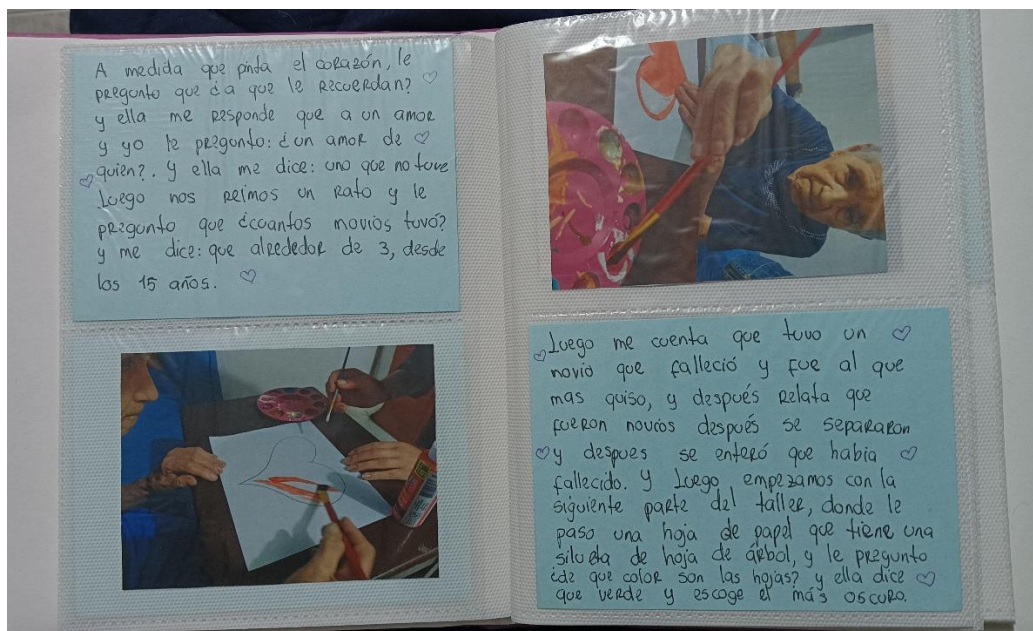 A medida que pinta el corazón, le
pregunto que ¿a que le recuerdan?
y ella me responde que a un amor
y yo le pregunto: ¿un amor de
quien?. Y ella me dice: uno que no tuve
Luego nos reimos un rato y le
pregunto que ¿cuantos novios tuvó?
y me dice: que alrededor de 3, desde
los 15 años.
Luego me cuenta que tuvo un
novio que falleció y fue al que
mas quiso, y después relata que
fueron novios después se separaron
y despues se enteró que habia
fallecido. Y Luego empezamos con la
siguiente parte del taller, donde le
paso una hoja de papel que tiene una
silueta de hoja de árbol, y le pregunto
¿de que color son las hojas? y ella dice
que verde y escoge el más oscuro.